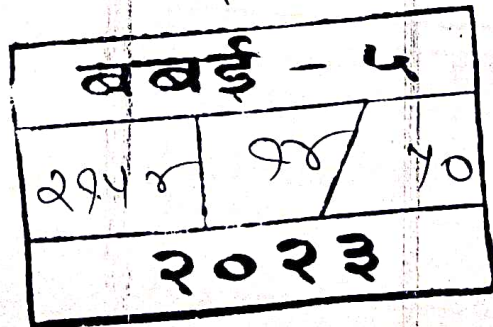 बबई - ५
२१५४ १४/५०
२०२३